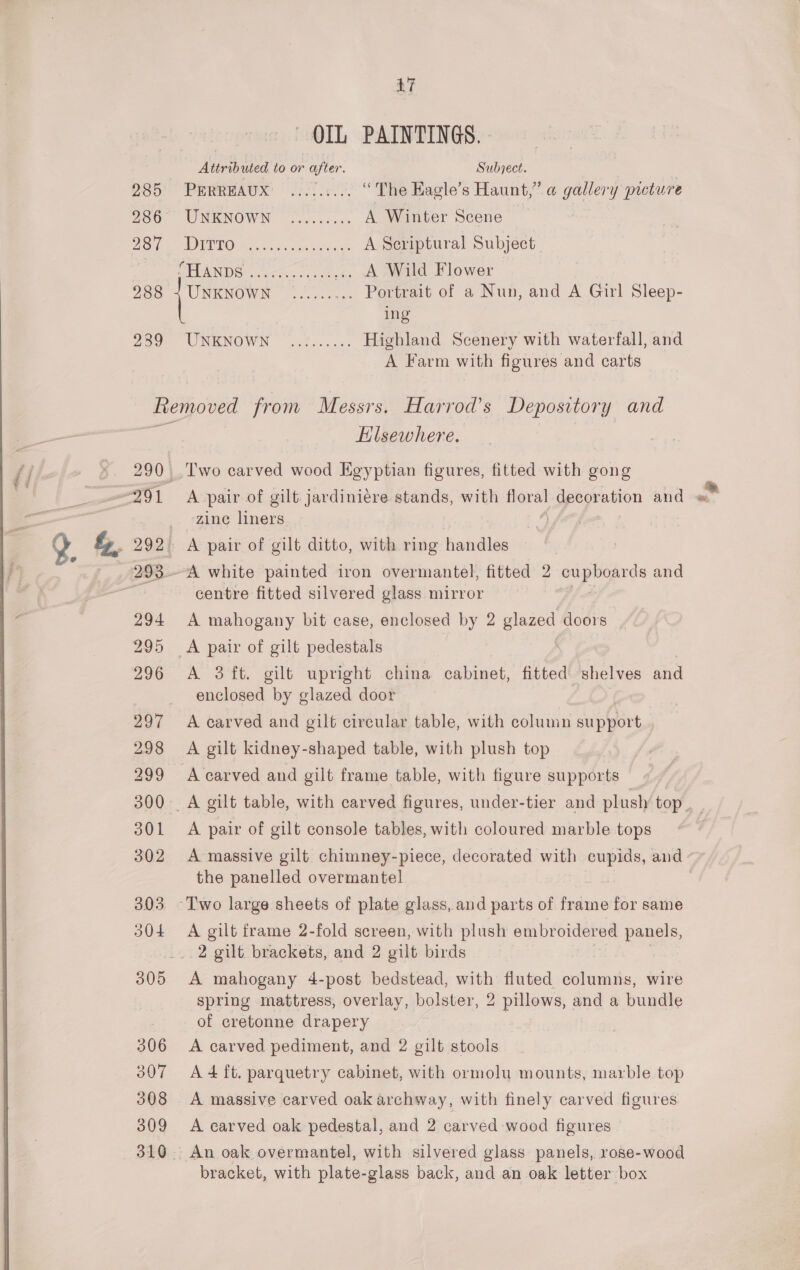 17
OIL PAINTINGS.
Attributed to or after. Subject.
285 PERREAUX ......... “The Eagle’s Haunt,” a gallery picture
286 UNKNOWN ......... A Winter Scene
287 DITTO ............... A Scriptural Subject
HANDS ............... A Wild Flower
288 { UNKNOWN ......... Portrait of a Nun, and A Girl Sleep-
ing
239 UNKNOWN ......... Highland Scenery with waterfall, and
A Farm with figures and carts
Removed from Messrs. Harrod’s Depository and
Elsewhere.
290 Two carved wood Egyptian figures, fitted with gong
291 A pair of gilt jardinière stands, with floral decoration and
zinc liners
292 A pair of gilt ditto, with ring handles
293 A white painted iron overmantel, fitted 2 cupboards and
centre fitted silvered glass mirror
294 A mahogany bit case, enclosed by 2 glazed doors
295 A pair of gilt pedestals
296 A 3 ft. gilt upright china cabinet, fitted shelves and
enclosed by glazed door
297 A carved and gilt circular table, with column support
298 A gilt kidney-shaped table, with plush top
299 A carved and gilt frame table, with figure supports
300 A gilt table, with carved figures, under-tier and plush top
301 A pair of gilt console tables, with coloured marble tops
302 A massive gilt chimney-piece, decorated with cupids, and
the panelled overmantel
303 Two large sheets of plate glass, and parts of frame for same
304 A gilt frame 2-fold screen, with plush embroidered panels,
2 gilt brackets, and 2 gilt birds
305 A mahogany 4-post bedstead, with fluted columns, wire
spring mattress, overlay, bolster, 2 pillows, and a bundle
of cretonne drapery
306 A carved pediment, and 2 gilt stools
307 A 4 ft. parquetry cabinet, with ormolu mounts, marble top
308 A massive carved oak archway, with finely carved figures
309 A carved oak pedestal, and 2 carved wood figures
310 An oak overmantel, with silvered glass panels, rose-wood
bracket, with plate-glass back, and an oak letter box